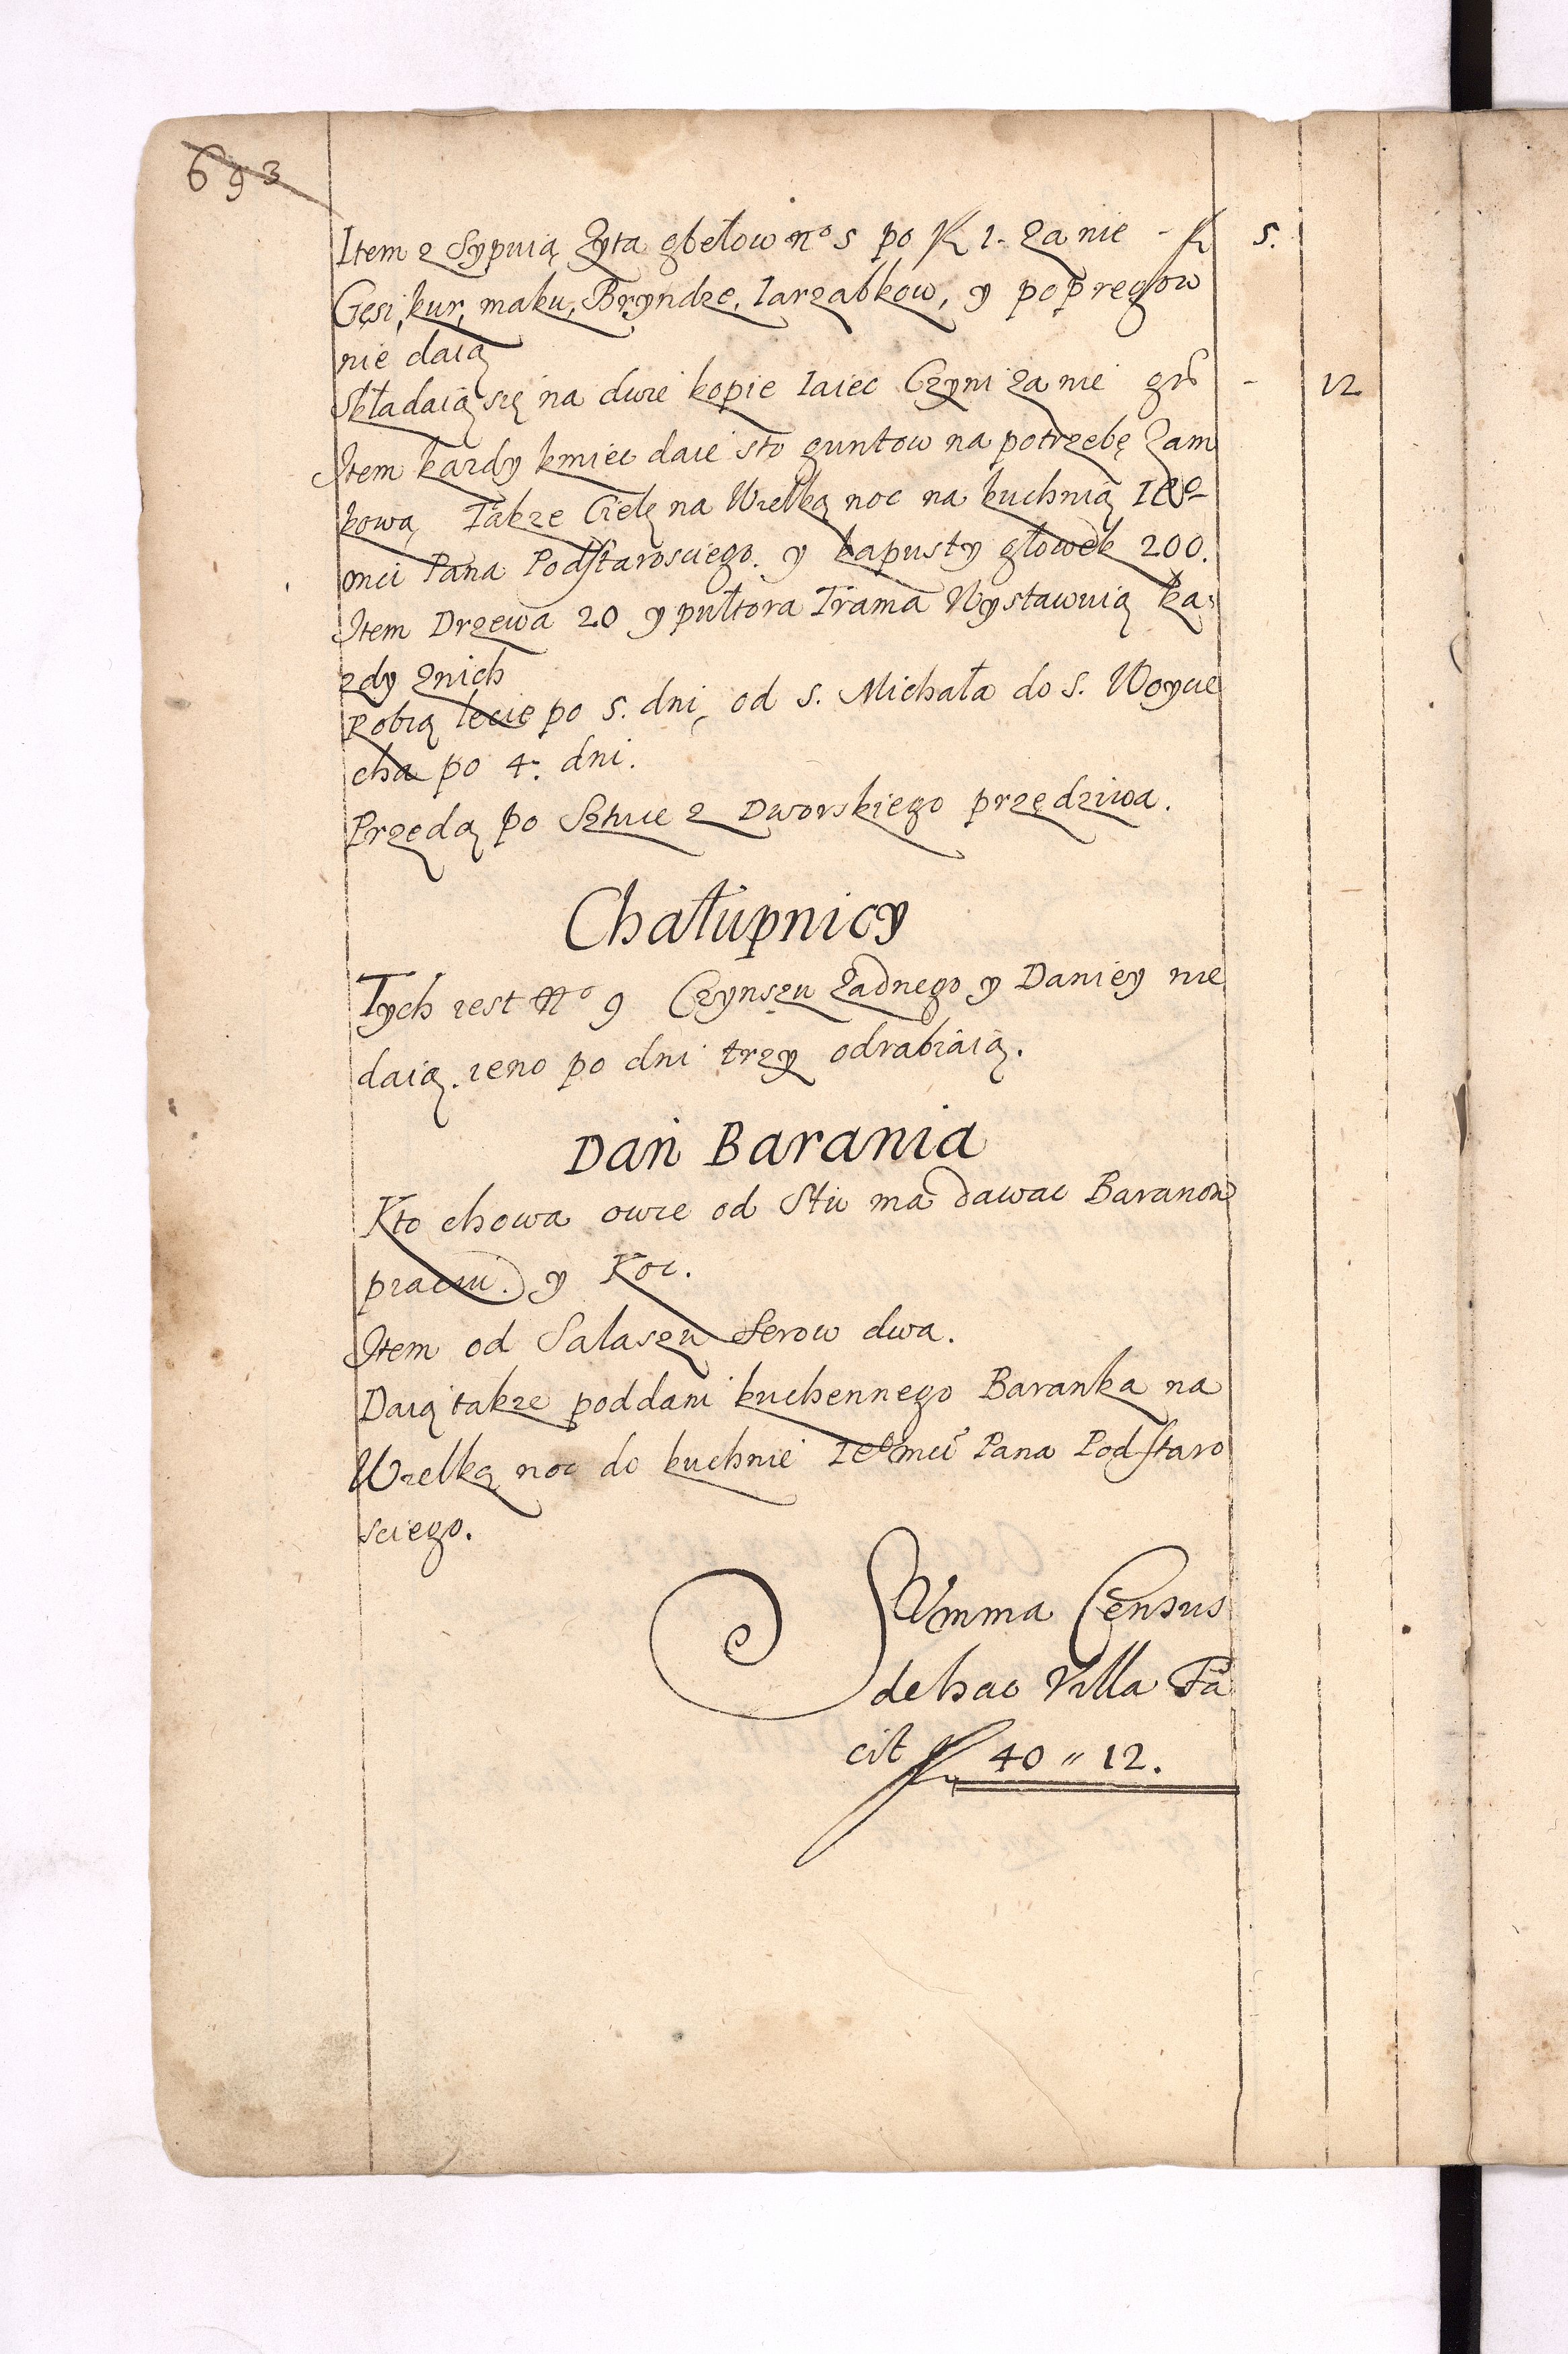 693
Item zsypuią Żyta gbełow nº 5 po fl 1. za nie - fl 5.
Gęsi, kur, maku, Bryndze, Iarząbkow, y popręgow
nie daią
Składaią się na dwie kopie Iaiec Czyni za nie gr - 12
Item kazdy kmiec daie sto guntow na potrzebę Zam
kową, Takze Cielę na Wielką noc na kuchnią Ieº
mci Pana Podstarosciego. y kapusty głowek 200.
Item Drzewa 20 y pułtora Trama Wystawuią ka:
zdy znich
Robią lecie po 5. dni, od S. Michała do S. Woycie
cha po 4. dni.
Przędą po Sztuce z Dworskiego przędziwa.
Chałupnicy
Tych iest Nº 9 Czynszu żadnego y Daniey nie
daią. ieno po dni trzy odrabiaią.
Dań Barania
Kto chowa owce od Stu ma dawac Baranow
piąciu. y Koc.
Item od Sałaszu Serow dwa.
Daią takze poddani kuchennego Baranka na
Wielką noc do kuchnie Ieº mci Pana Podstaro
sciego.
Summa Census
de hac Villa Fa
cit fl 40 " 12.